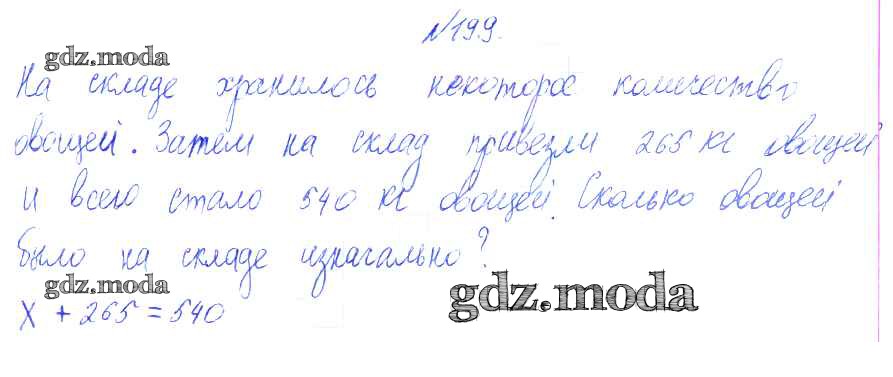 №199.
gdz.moda
На складе хранилось некоторое количество
овощей. Затем на склад привезли 265 кг овощей
и всего стало 540 кг овощей. Сколько овощей
было на складе изначально?
gdz.moda
gdz.moda
x + 265 = 540